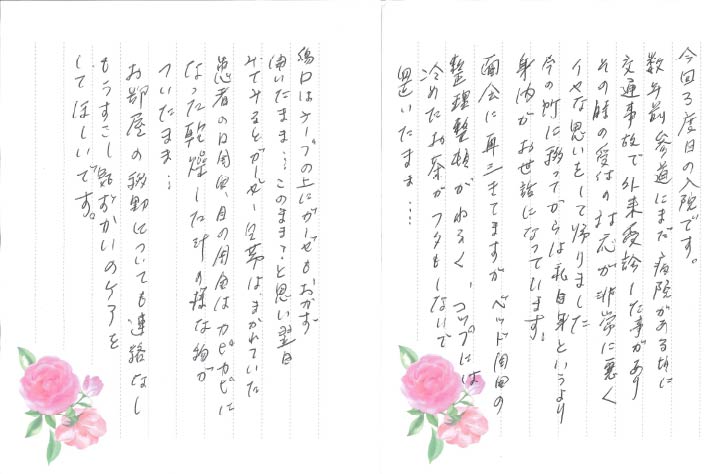 今回3度目の入院です。
数年前参道にまだ病院がある時に
交通事故で外来受診した事があり
その時の受付の対応が非常に悪く
イヤな思いをして帰りました
今の所に移ってからは私自身というより
身内がお世話になっています。
面会に再三きてますが ベッド周囲の
整理整頓がわるく、コップには
冷めたお茶がフタもしないで
置いたまま…
傷口はテープの上にガーゼもおかず
開いたまま…このまま?と思い翌日
みてみるとガーゼ、包帯はまかれていた
患者の口周囲、目の周囲はカピカピに
なった乾燥した汁の様な物が
ついたまま…
お部屋の移動についても連絡なし
もうすこし気づかいのケアを
してほしいです。